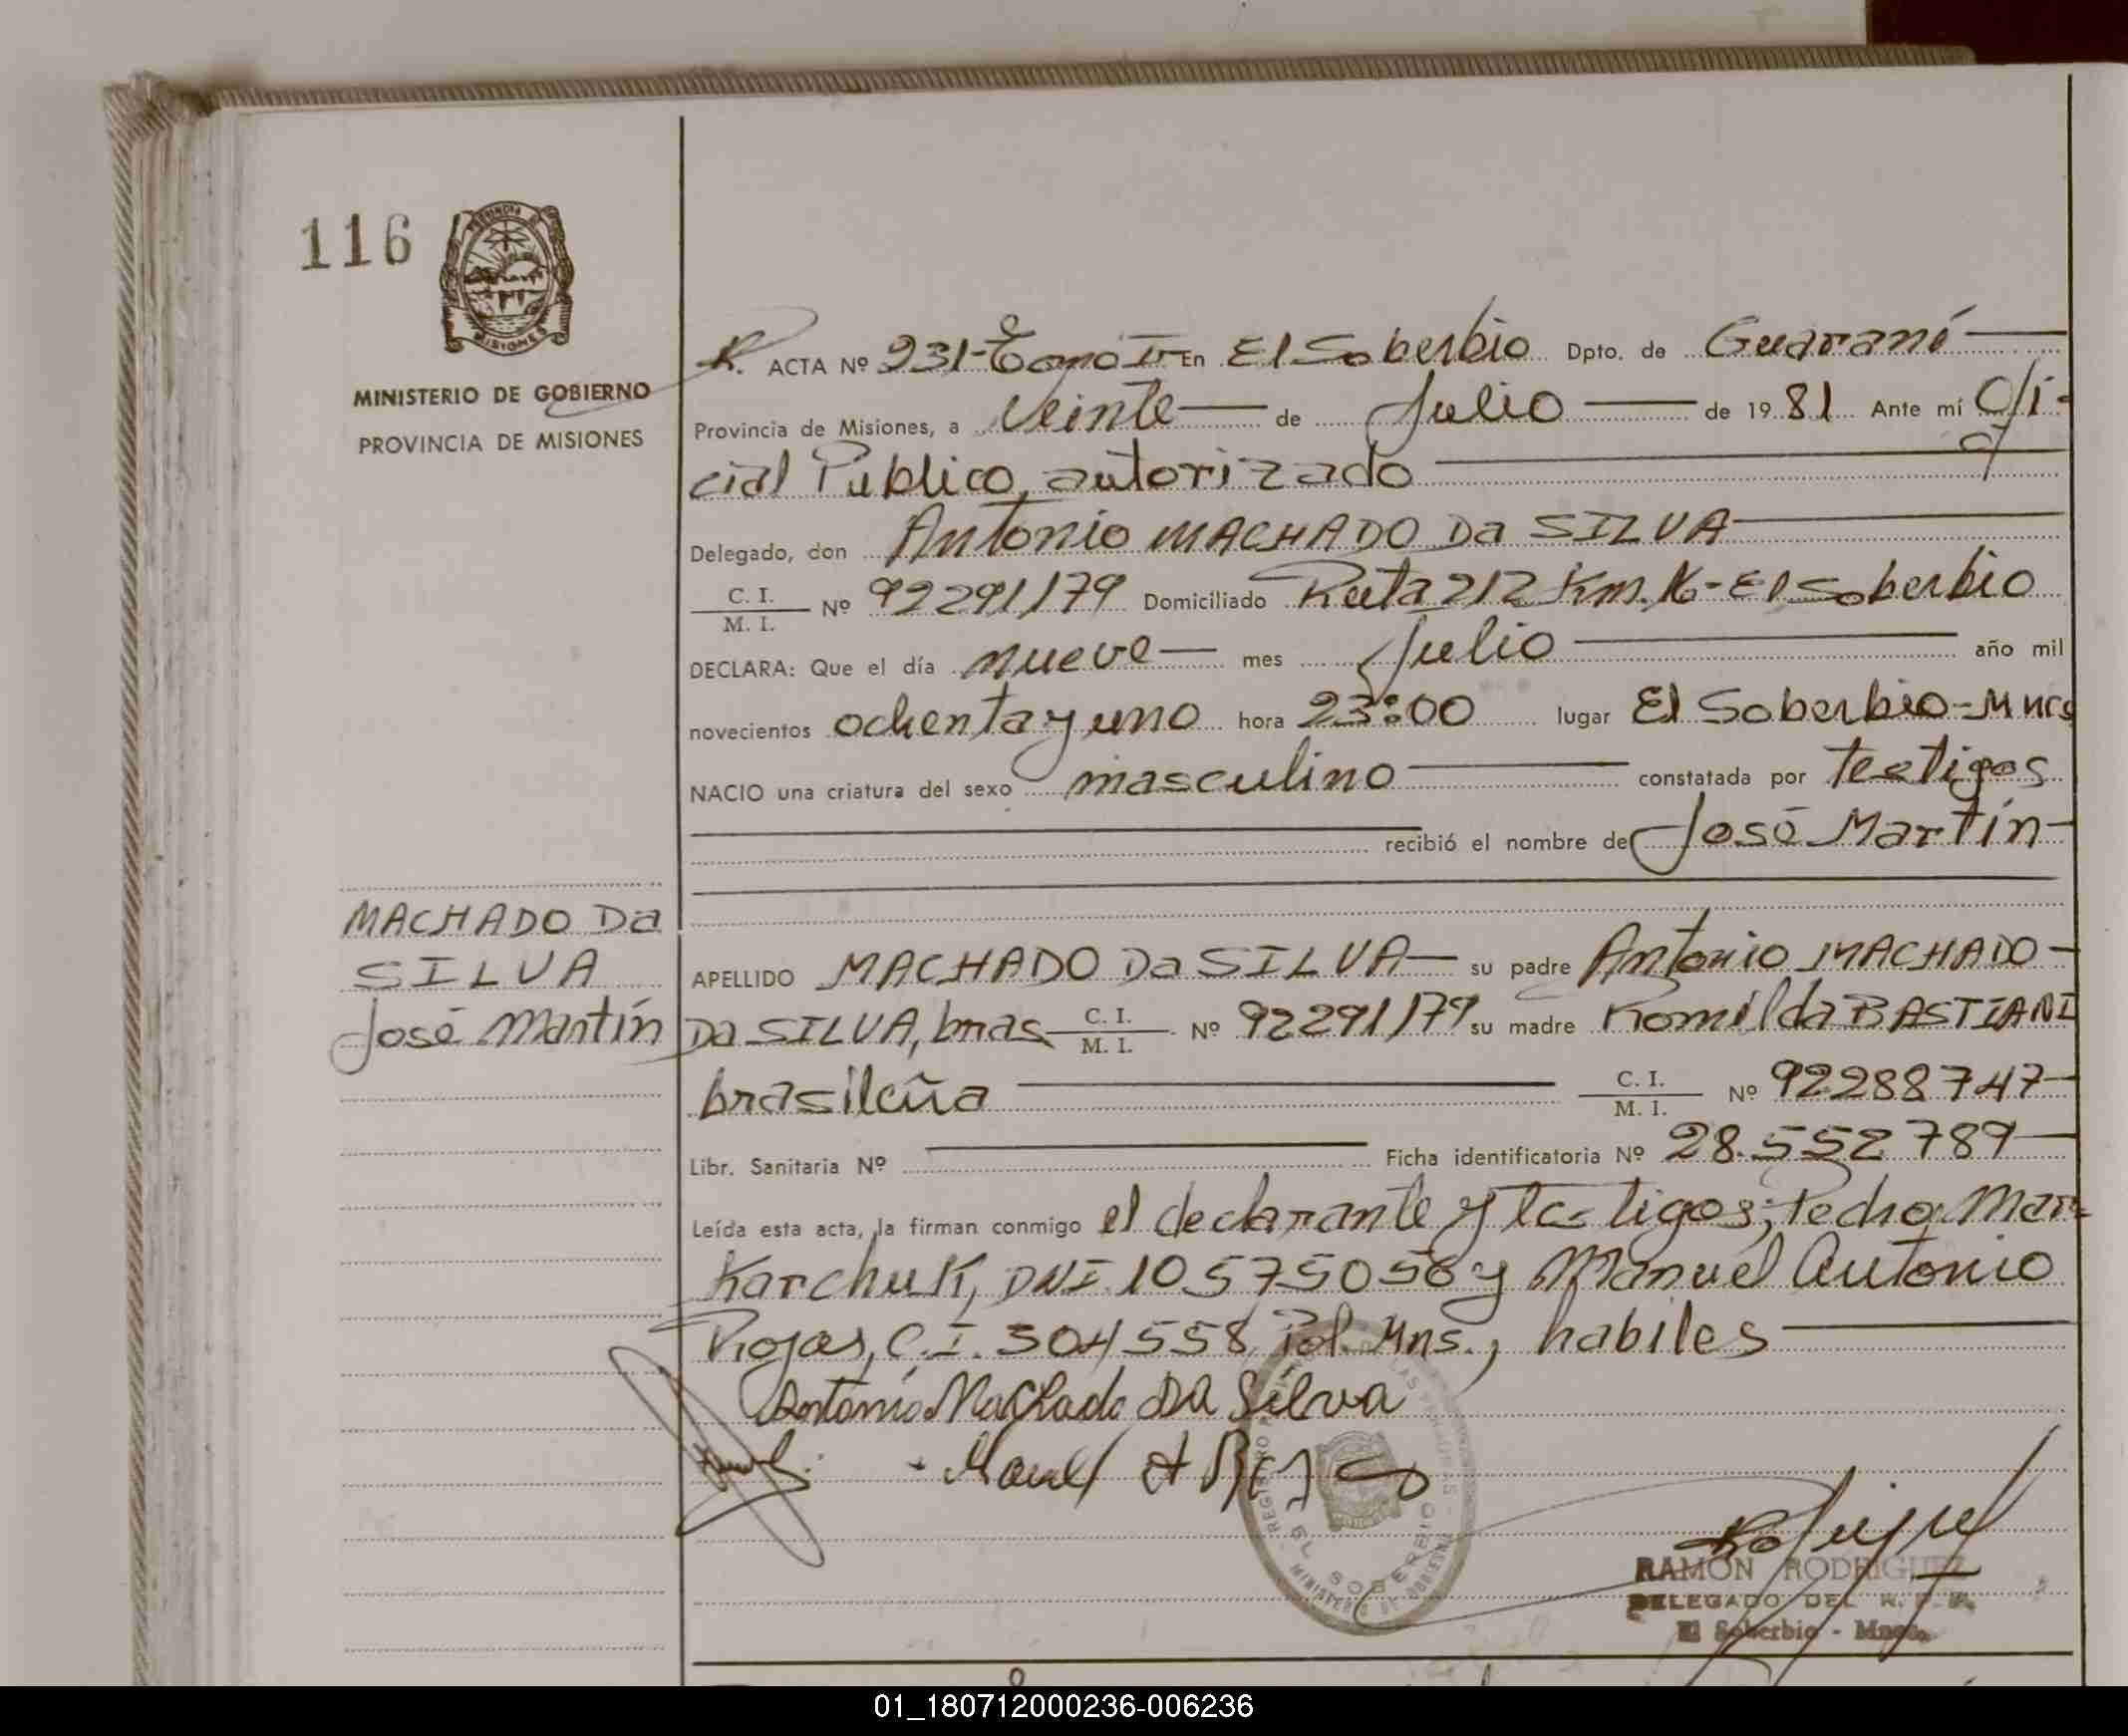 116
MINISTERIO DE GOBIERNO
PROVINCIA DE MISIONES
R. ACTA Nº 231-Tomo II En El Soberbio Dpto. de Guaraní
Provincia de Misiones, a Veinte de Julio de 19 81 Ante mí Ofi-
cial Publico, autorizado
Delegado, don Antonio MACHADO Da SILVA
C. I.
M. I. Nº 92291179 Domiciliado Ruta 212 Km. 16-El Soberbio
DECLARA: Que el día nueve mes Julio año mil
novecientos ochenta y uno hora 23:00 lugar El Soberbio-Mnes
NACIO una criatura del sexo masculino constatada por testigos
recibió el nombre de José Martín
MACHADO Da
SILVA
José Martín
APELLIDO MACHADO Da SILVA su padre Antonio MACHADO
Da SILVA, bras C. I.
M. I. Nº 92291179 su madre Romilda BASTIANI
brasileña C. I.
M. I. Nº 92288747
Libr. Sanitaria Nº Ficha identificatoria Nº 28.552789
Leída esta acta, la firman conmigo el declarante y testigos; Pedro Mar=
Karchuk, DNI. 10575058 y Manuel Antonio
Rojas, C.I. 304558, Pol. Mns., habiles
Antonio Machado DA Silva
Manuel A Rojas
EL SOBERBIO
RAMON RODRIGUEZ
DELEGADO DEL R. P. P.
El Soberbio - Mnes.
01_180712000236-006236